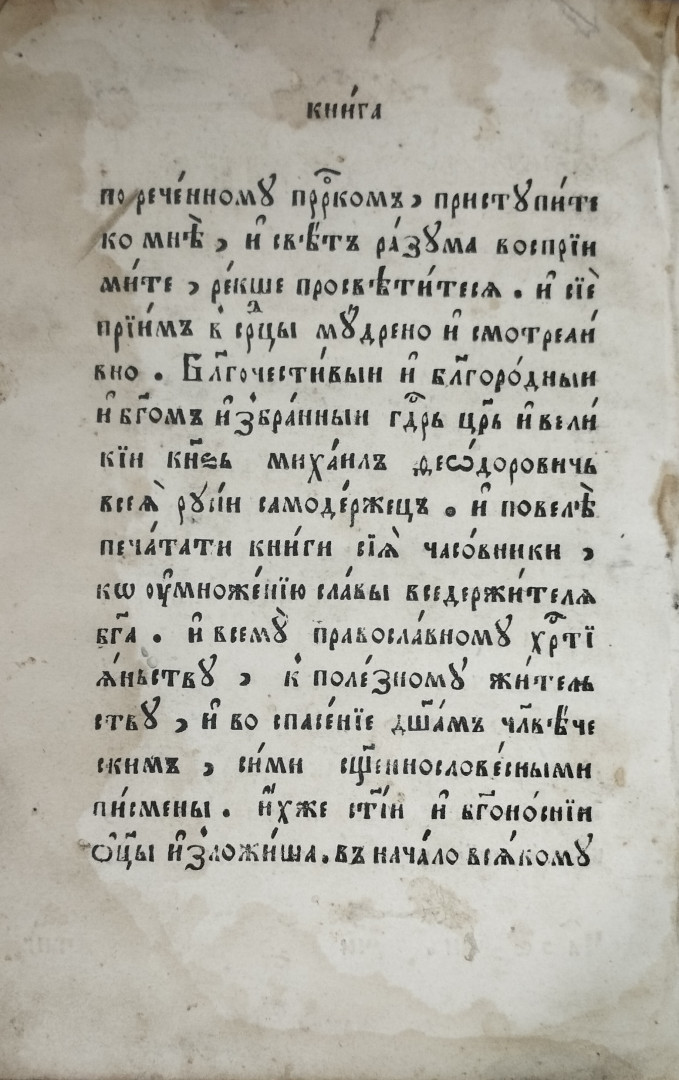 кни́га
по рече́нному прⷪ҇ркомъ, приступи́те
ко мнѣ̀, и҆ свѣ́тъ ра́зума воспрїи
ми́те, ре́кше просвѣти́теся. и҆ сїѐ
прїи́мъ в҆ срⷣцы мꙋ́дрено и҆ смотрели́
вно. Бл҃гочести́выи и҆ бл҃горо́дныи
и҆ бг҃омъ и҆збра́нныи гдⷭ҇рь цр҃ь и҆ вели́
кїи кн҃ѕь михаи́лъ ѳеѡ́доровичь
всеѧ̀ руси́и самоде́ржецъ. и҆ повелѣ̀
печа́тати кни́ги сїѧ̀ часо́вники,
кѡ оу҆множе́нїю сла́вы вседержи́телѧ
бг҃а. и҆ всемꙋ̀ правосла́вномꙋ хрⷭ҇тї
ѧ́ньствꙋ, к҆ поле́зномꙋ жи́тель
ствꙋ, и҆ во спасе́нїе дш҃а́мъ чл҃вѣ́че
скимъ, си́ми сщ҃еннослове́сными
пи́смены. и҆́хже ст҃і́и и҆ бг҃оно́снїи
ѻц҃ы и҆зложи́ша. въ нача́ло всѧ́комꙋ